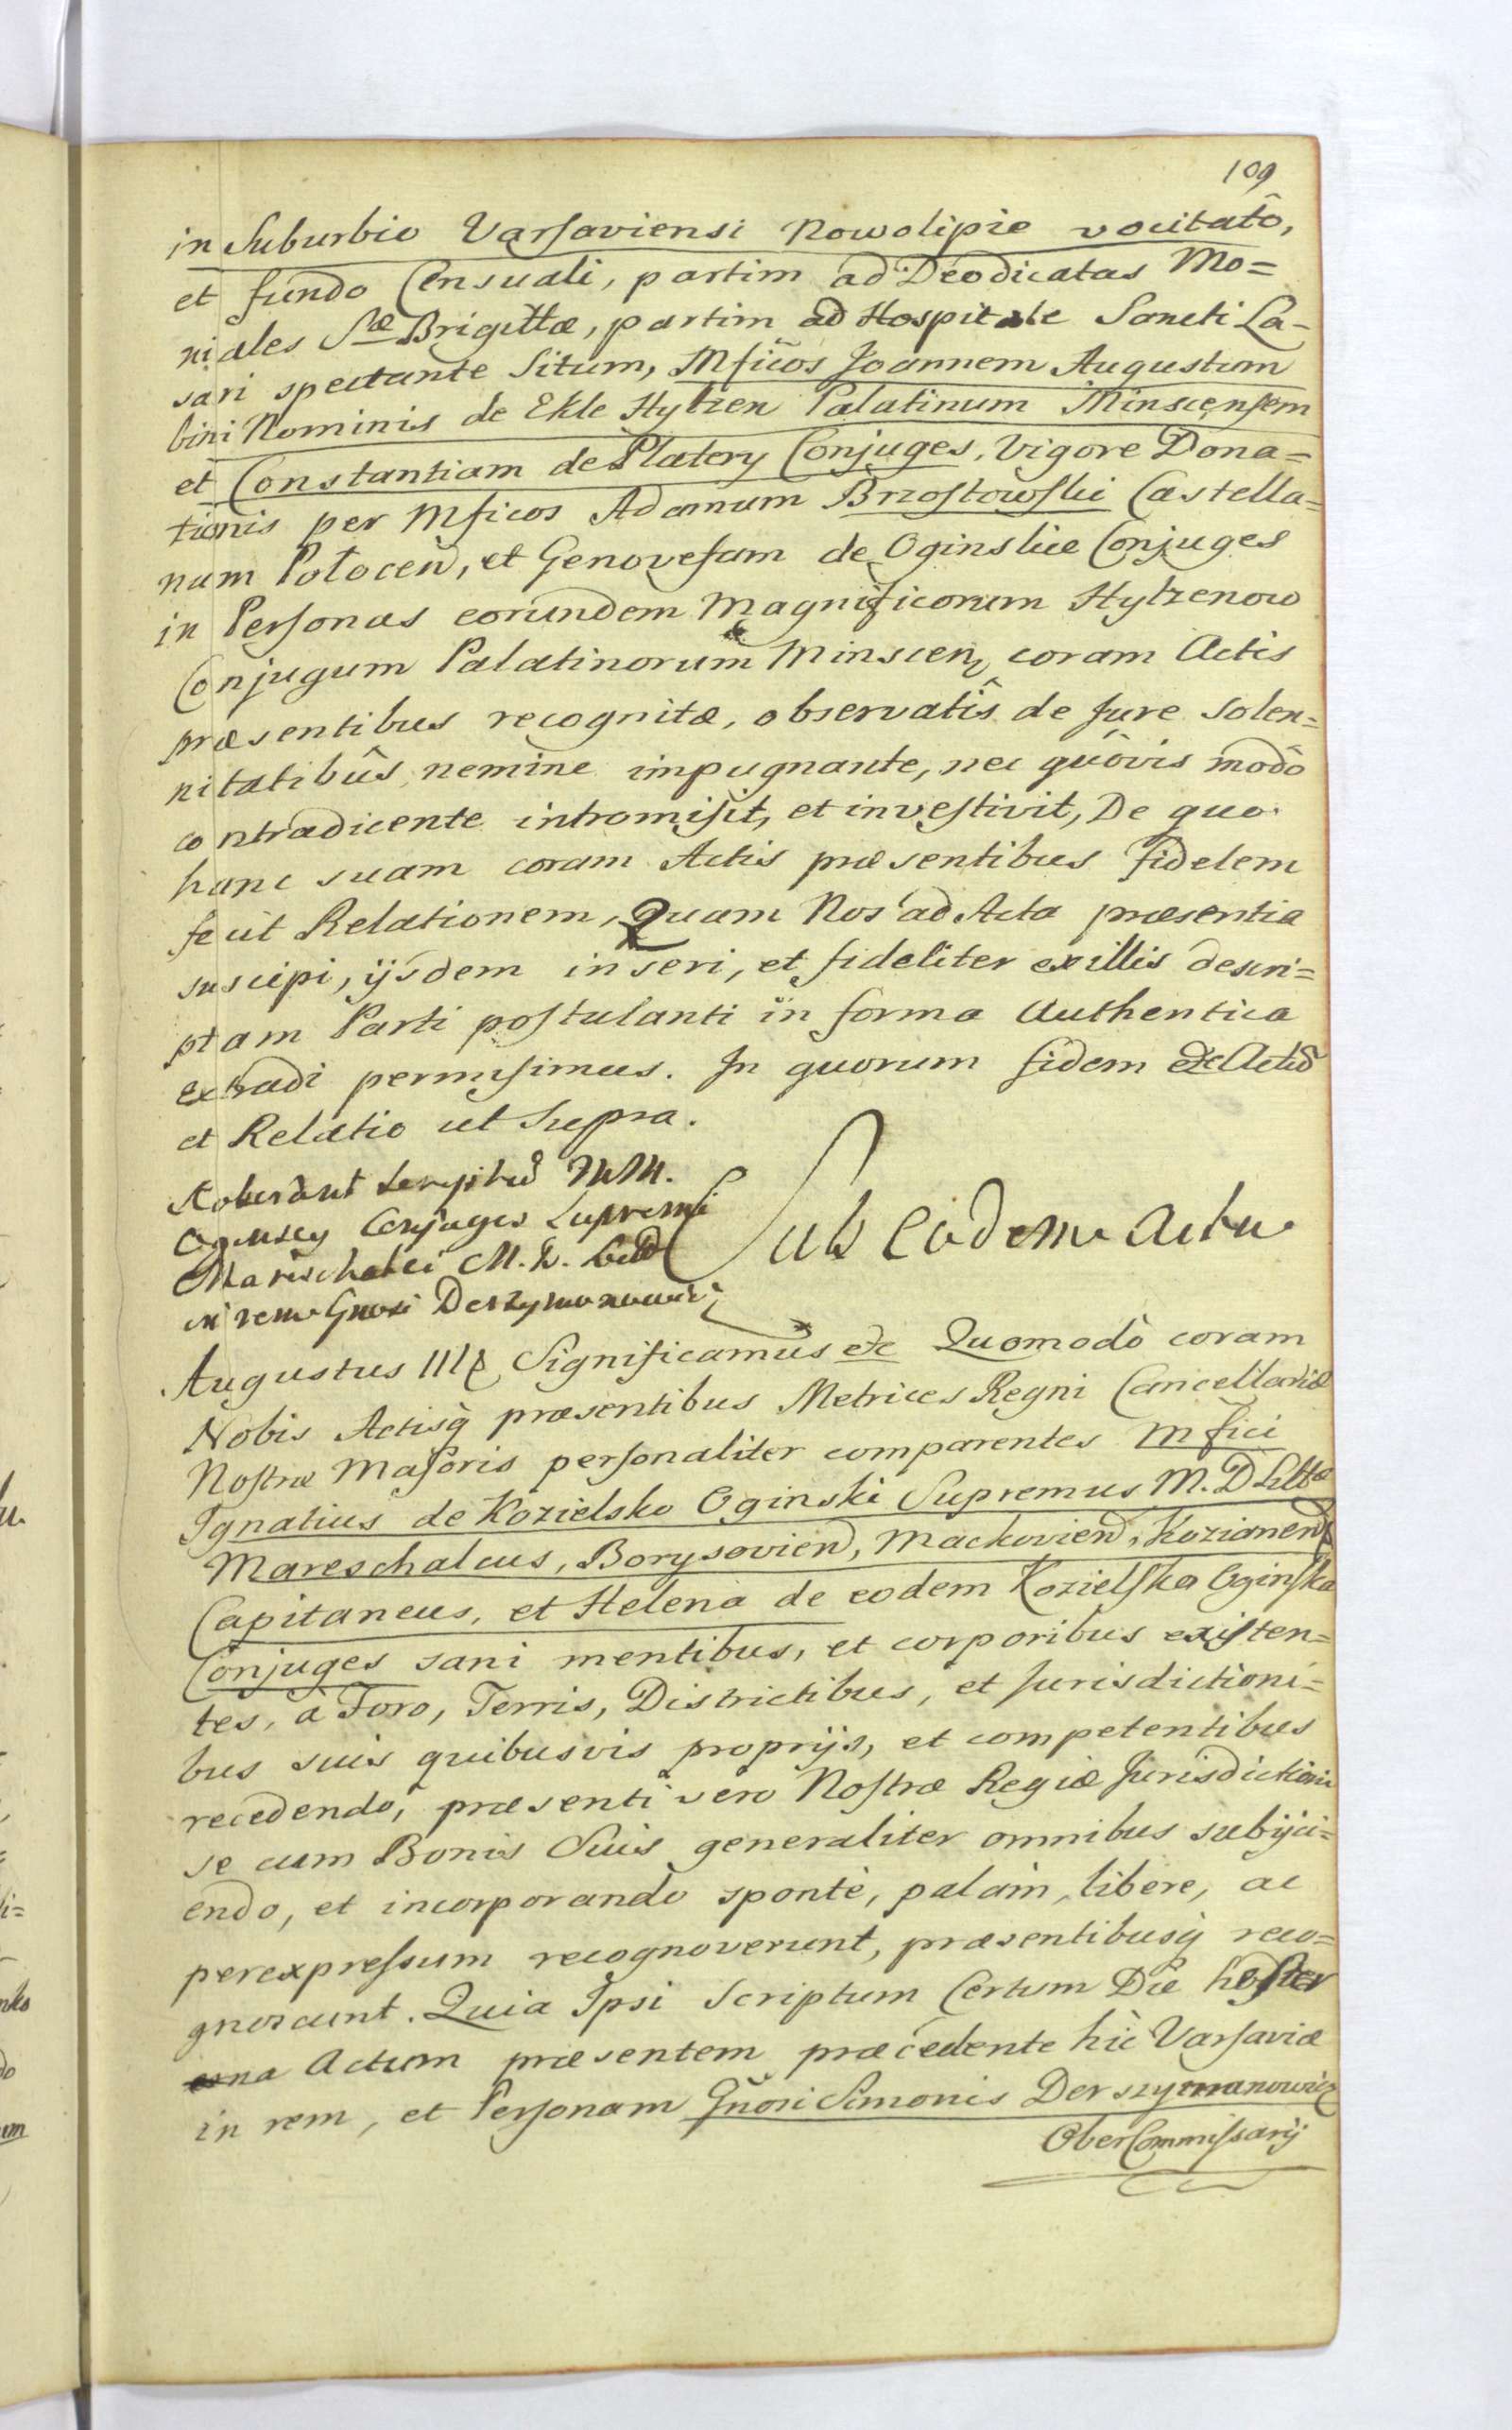 109
in Suburbio Varsaviensi Nowolipie vocitatô,
et fundo Censuali, partim ad Deodicatas Mo=
niales Sæ Brigittæ, partim ad Hospitale Sancti La-
sari spectante Situm, Mficos Joannem Augustum
bini Nominis de Ekle Hylzen Palatinum Minscensem
et Constantiam de Platery Conjuges, Vigore Dona=
tionis per Mficos Adamum Brzostowski Castella=
num Połocen, et Genovefam de Oginskie Conjuges
in Personas eorundem Magnificorum Hylzenow
Conjugum Palatinorum Minscen, coram Actis
præsentibus recognitæ, observatîs de Jure solen=
nitatibûs, nemine impugnante, nec quôvis modô
contradicente intromisit, et investivit, De quo
hanc suam coram Actis præsentibus fidelem
fecit Relationem, Quam Nos ad Acta præsentia
suscipi, ijsdem inseri, et fideliter ex illis descri=
ptam Parti postulanti in forma Authentica
extradi permisimus. In quorum fidem etc Actû
et Relatio ut Supra.
Roborant Scriptû MM.
Oginscy Conjuges Supremi
Marschalci M. D. Litt
in rem Gnosi Derszymonowicz
Sub eodem actu
Augustus IIItz Significamus etc Quomodò coram
Nobis Actisq præsentibus Metrices Regni Cancellariæ
Nostræ Majoris personaliter comparentes Mfici
Ignatius de Kozielsko Oginski Supremus M. D. Littæ
Mareschalcus, Borysovien, Mackovien, Kozianen
Capitaneus, et Helena de eodem Kozielsko Oginska
Conjuges sani mentibus, et corporibus existen=
tes, à Foro, Terris, Districtibus, et Jurisdictioni=
bus suis quibusvis proprijs, et competentibus
recedendo, præsenti vero Nostræ Regiæ Jurisdictioni
se cum Bonis Suis generaliter omnibus subijci=
endo, et incorporando spontè, palàm, libere, ac
perexpressum recognoverunt, præsentibusq reco=
gnoscunt. Quia Ipsi Scriptum Certum Die hester
na Actum præsentem præcedente hîc Varsaviæ
in rem, et Personam Gnosi Simonis Derszymanowicz
OberCommissarij